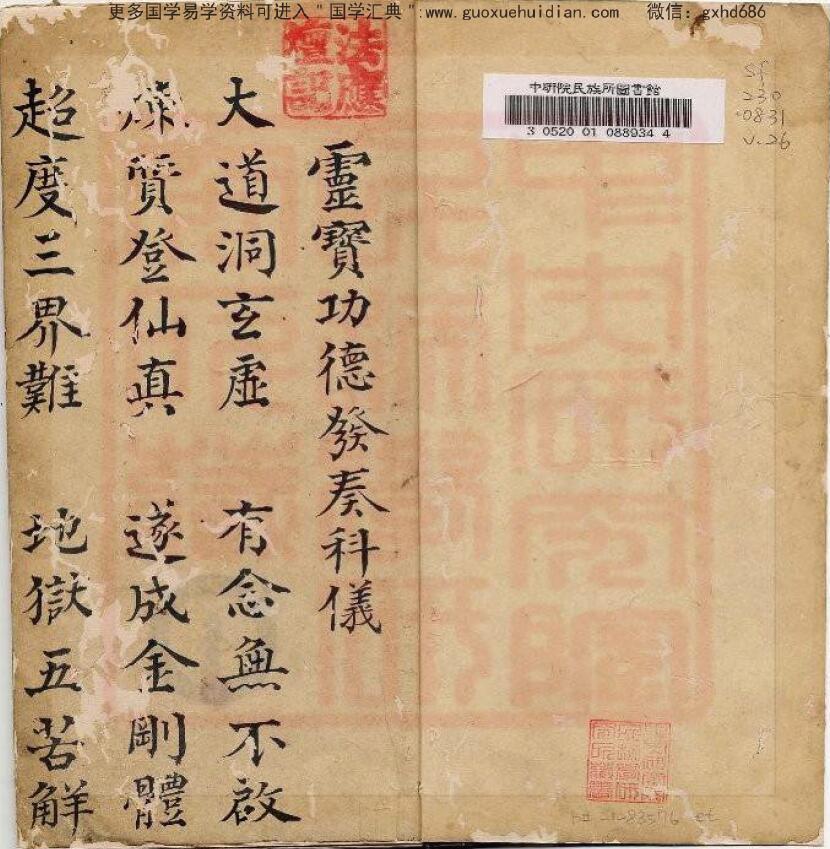 更多国学易学资料可进入＂国学汇典＂:www.guoxuehuidian.com 微信：gxhd686
中研院民族所圖書館
3 0520 01 088934 4
sf
230
.0831
v.26
靈寶功德發奏科儀
大道洞玄虛 有念無不啟
煉質登仙真 遂成金剛體
超度三界難 地獄五苦解
法應
壇記